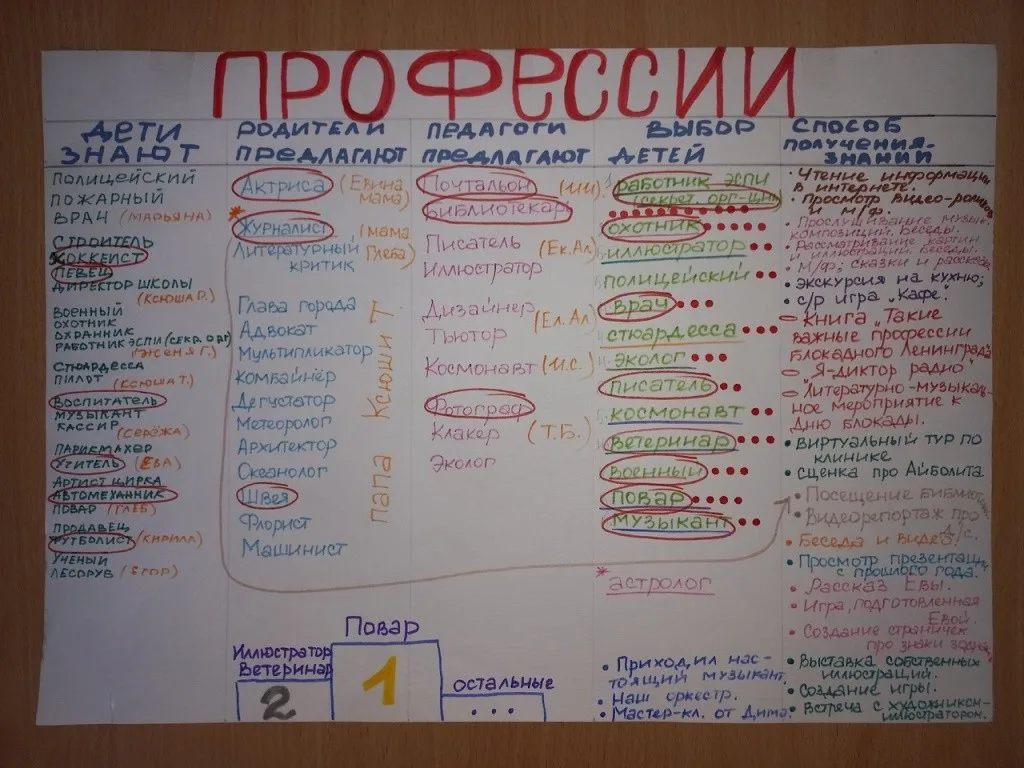 ПРОФЕССИИ
ДЕТИ
ЗНАЮТ
ПОЛИЦЕЙСКИЙ
ПОЖАРНЫЙ
ВРАЧ (МАРЬЯНА)
СТРОИТЕЛЬ
ХОККЕИСТ
ПЕВЕЦ
ДИРЕКТОР ШКОЛЫ
(КСЮША Р.)
ВОЕННЫЙ
ОХОТНИК
ОХРАННИК
РАБОТНИК ЭСПИ (СЕКР. ОРГ)
(ЖЕНЯ Г.)
СТЮАРДЕССА
ПИЛОТ (КСЮША Т.)
ВОСПИТАТЕЛЬ
МУЗЫКАНТ
КАССИР
(СЕРЁЖА)
ПАРИКМАХЕР
УЧИТЕЛЬ (ЕВА)
АРТИСТ ЦИРКА
АВТОМЕХАННИК
ПОВАР (ГЛЕБ)
ПРОДАВЕЦ
ФУТБОЛИСТ (КИРИЛЛ)
УЧЕНЫЙ
ЛЕСОРУБ (ЕГОР)
РОДИТЕЛИ
ПРЕДЛАГАЮТ
Актриса (Евина мама)
* Журналист (мама Глеба)
Литературный
критик
Глава города
Адвокат
Мультипликатор
Комбайнёр
Дегустатор
Метеоролог
Архитектор
Океанолог
Швея
Флорист
Машинист
Папа Ксюши Т.
ПЕДАГОГИ
ПРЕДЛАГАЮТ
Почтальон (И.И)
Библиотекарь
Писатель (Ек.Ал)
Иллюстратор
Дизайнер (Ел.Ал)
Тьютор
Космонавт (И.С.)
Фотограф
Клакер (Т.Б.)
Эколог
ВЫБОР
ДЕТЕЙ
работник ЭСПИ
(секрет. орг-ции)
охотник
иллюстратор
полицейский
врач
стюардесса
эколог
писатель
космонавт
Ветеринар
Военный
Повар
музыкант
* астролог
• Приходил нас-
тоящий музыкант.
• Наш оркестр.
• Мастер-кл. от Димы.
СПОСОБ
ПОЛУЧЕНИЯ
ЗНАНИЙ
• Чтение информации
в интернете.
• Просмотр видео-роликов
и м/ф.
• Прослушивание музык.
композиций. Беседы.
• Рассматривание картин
и иллюстраций. Беседы.
• М/ф, сказки и рассказы
• экскурсия на кухню;
• с/р игра "Кафе".
– книга "Такие
важные профессии
блокадного Ленинграда"
– "Я-диктор радио"
– "Литературно-музыкаль-
ное мероприятие к
Дню блокады.
• Виртуальный тур по
клинике
• Сценка про Айболита
• Посещение библиотеки
• Видеорепортаж про
• Беседа и видео
• Просмотр презентации
с прошлого года.
• Рассказ Евы.
• Игра, подготовленная
Евой.
• Создание страничек
про знаки зодиака
• Выставка собственных
иллюстраций.
• Создание игры.
• Встреча с художником-
иллюстратором.
Повар
1
Иллюстратор
Ветеринар
2
остальные
...